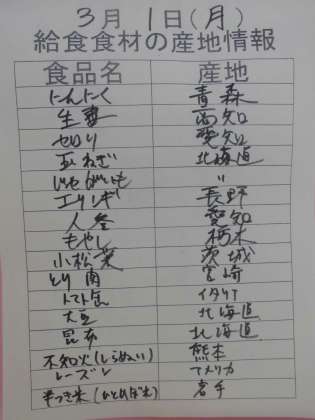 3月 1日(月)
給食食材の産地情報
食品名 産地
にんにく 青森
生姜 高知
セロリ 愛知
玉ねぎ 北海道
じゃがいも 〃
エリンギ 長野
人参 愛知
もやし 栃木
小松菜 茨城
とり肉 宮崎
トマト缶 イタリア
大豆 北海道
昆布 北海道
不知火(しらぬい) 熊本
レーズン アメリカ
もつき米(ひとめぼれ) 岩手